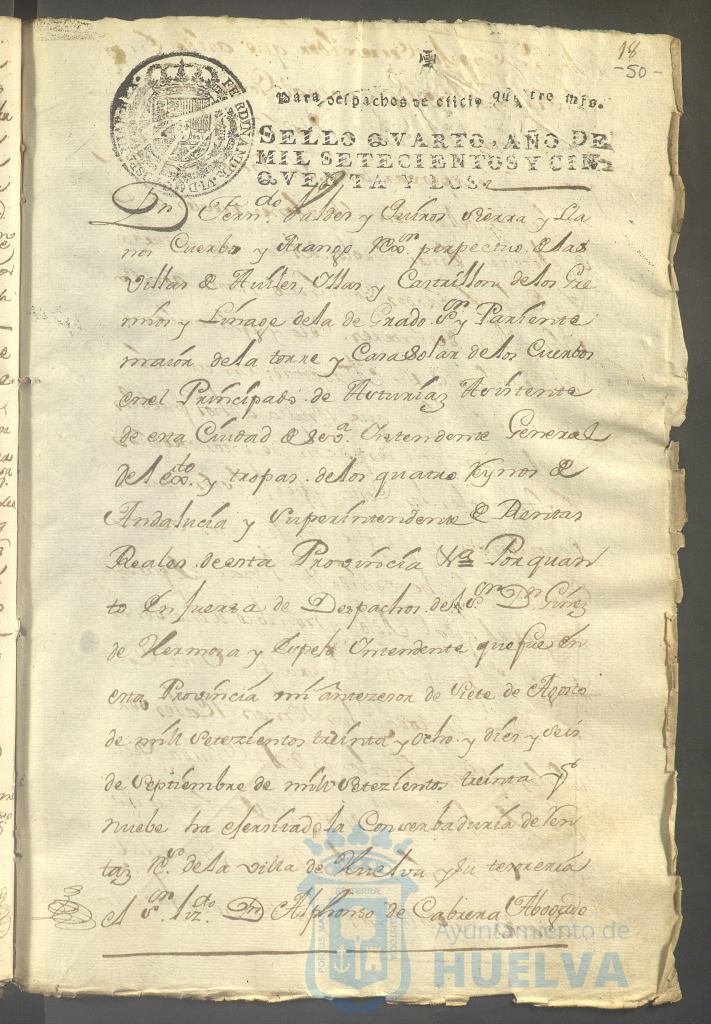 18
-50-
Para despachos de oficio quatro mrs.
SELLO QVARTO, AÑO DE
MIL SETECIENTOS Y CIN-
QVENTA Y DOS.
FERDINANDUS VI D G
Dn Fern.do Valdes y Quiros Sierra y Lla
nos Cuerbo y Arango Rex.or perpectuo de las
Villas de Aviles, Illas y Castrillon de los Gre
mios y Linage dela de Grado S.or y Pariente
maior dela torre y Casa Solar de los Cuerbos
en el Principado de Asturias Asistente
de esta Ciudad de Sev.a Intendente General
del ex.to y tropas de los quatro Rynos de
Andalucia y Superintendente de Rentas
Reales de esta Provincia &a Por quan
to en fuerza de Despachos del S.or Dn Ginez
de Hermosa y Espejo Intendente que fue en
esta Provincia mi antezesor de Siete de Agosto
de mill setezientos treinta y ocho y diez y seis
de Septiembre de mill setezientos treinta y
nuebe ha exersitado la Conserbaduria de Ren
taz R.s de la villa de Huelva y su tesoreria
el S.or Liz.do Dn Alphonso de Cabrera Abogado
Ayuntamiento de
HUELVA